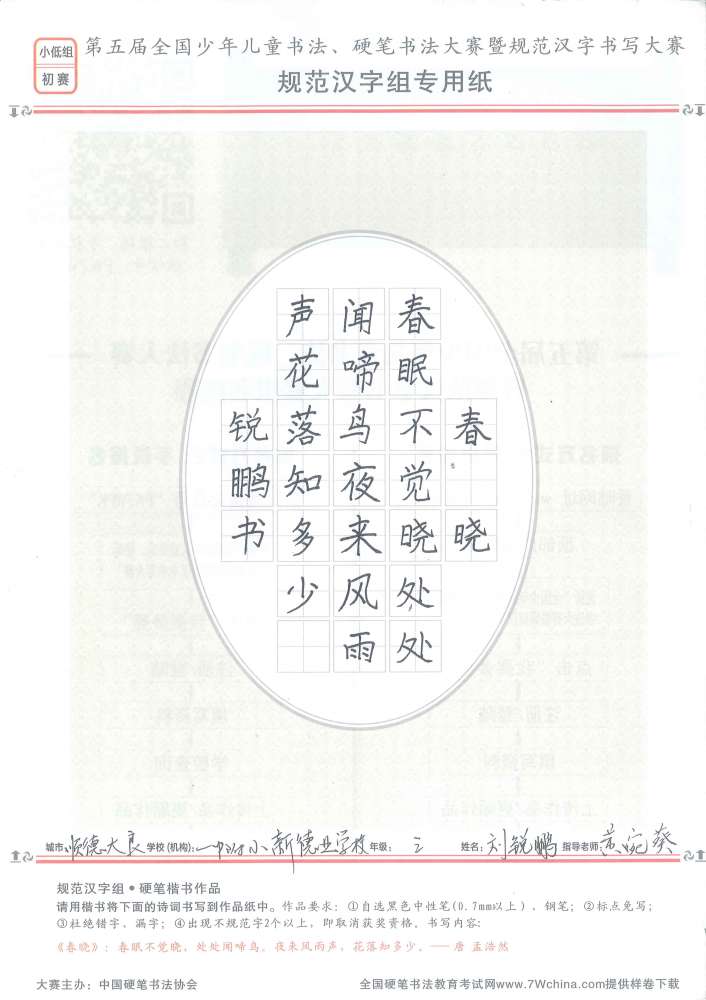 小低组
初赛
第五届全国少年儿童书法、硬笔书法大赛暨规范汉字书写大赛
规范汉字组专用纸
春晓
春眠不觉晓处处
闻啼鸟夜来风雨
声花落知多少
锐鹏书
城市：顺德大良 学校(机构)：一中附小新德业学校 年级：三 姓名：刘锐鹏 指导老师：黄宛葵
规范汉字组•硬笔楷书作品
请用楷书将下面的诗词书写到作品纸中。作品要求：①自选黑色中性笔(0.7mm以上)、钢笔；②标点免写；
③杜绝错字、漏字；④出现不规范字2个以上，即取消获奖资格。书写内容：
《春晓》：春眠不觉晓，处处闻啼鸟。夜来风雨声，花落知多少。——唐 孟浩然
大赛主办：中国硬笔书法协会
全国硬笔书法教育考试网www.7Wchina.com提供样卷下载